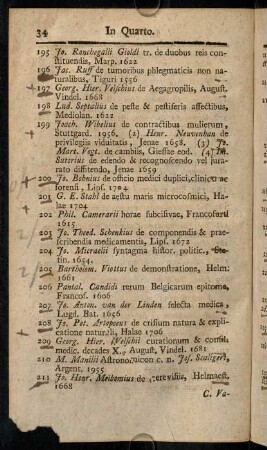 34 In Quarto.
195 Jo. Ronchegalli Gioldi tr. de duobus reis con
stituendis, Marp. 1622
196 Jac. Ruff de tumoribus phlegmaticis non na-
turalibus, Tiguri 1556
197 Georg. Hier. Velschius de Aegagropilis, August.
Vindel. 1668
198 Lud. Septalius de peste & pestiferis affectibus,
Mediolan. 1622
199 Joach. Wibelius de contractibus mulierum,
Stuttgard. 1656. (2) Henr. Neuvvnhan de
privilegiis viduitatis, Jenae 1658. (3) Jo.
Marc. Vogt. de cambiis, Giessae eod. (4)
Sutorius de edendo & recognoscendo vel jura-
rato diffitendo, Jenae 1659
200 Jo. Bohnius de officio medici duplici, clinico ac
forensi, Lips. 1704
201 G. E. Stahl de aestu maris microcosmici, Ha-
lae 1704
202 Phil. Camerarii horae subcisivae, Francofurti
1615
203 Jo. Theod. Schenkius de componendis & prae-
scribendis medicamentis, Lips. 1672
204 Jo. Micraelii syntagma histor. politic.,
tin. 1654.
205 Bartholom. Viottus de demonstratione, Helm.
1661
206 Pantal. Candidi rerum Belgicarum epitome,
Francof. 1606
207 Jo. Anton. van der Linden selecta medica,
Lugd. Bat. 1656
208 Jo. Pet. Artopoeus de crisium natura & expli-
catione naturali, Halae 1706
209 Georg. Hier. Welschii curationum & consil.
medic. decades X., August. Vindel. 1681
210 M. Manilii Astronomicon c. n. Jos. Scaligeri,
Argent. 1655
211 Jo. Henr. Meibomius de cerevisiis, Helmaest.
1668
C. Va-